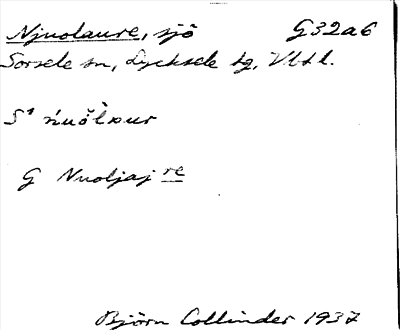 Njuolaure, sjö G32a6
Sorsele sn, Lycksele tg, Vbtl.
S¹ ńuŏ̀lɒur
G Nuoljaj re
Björn Collinder 1937